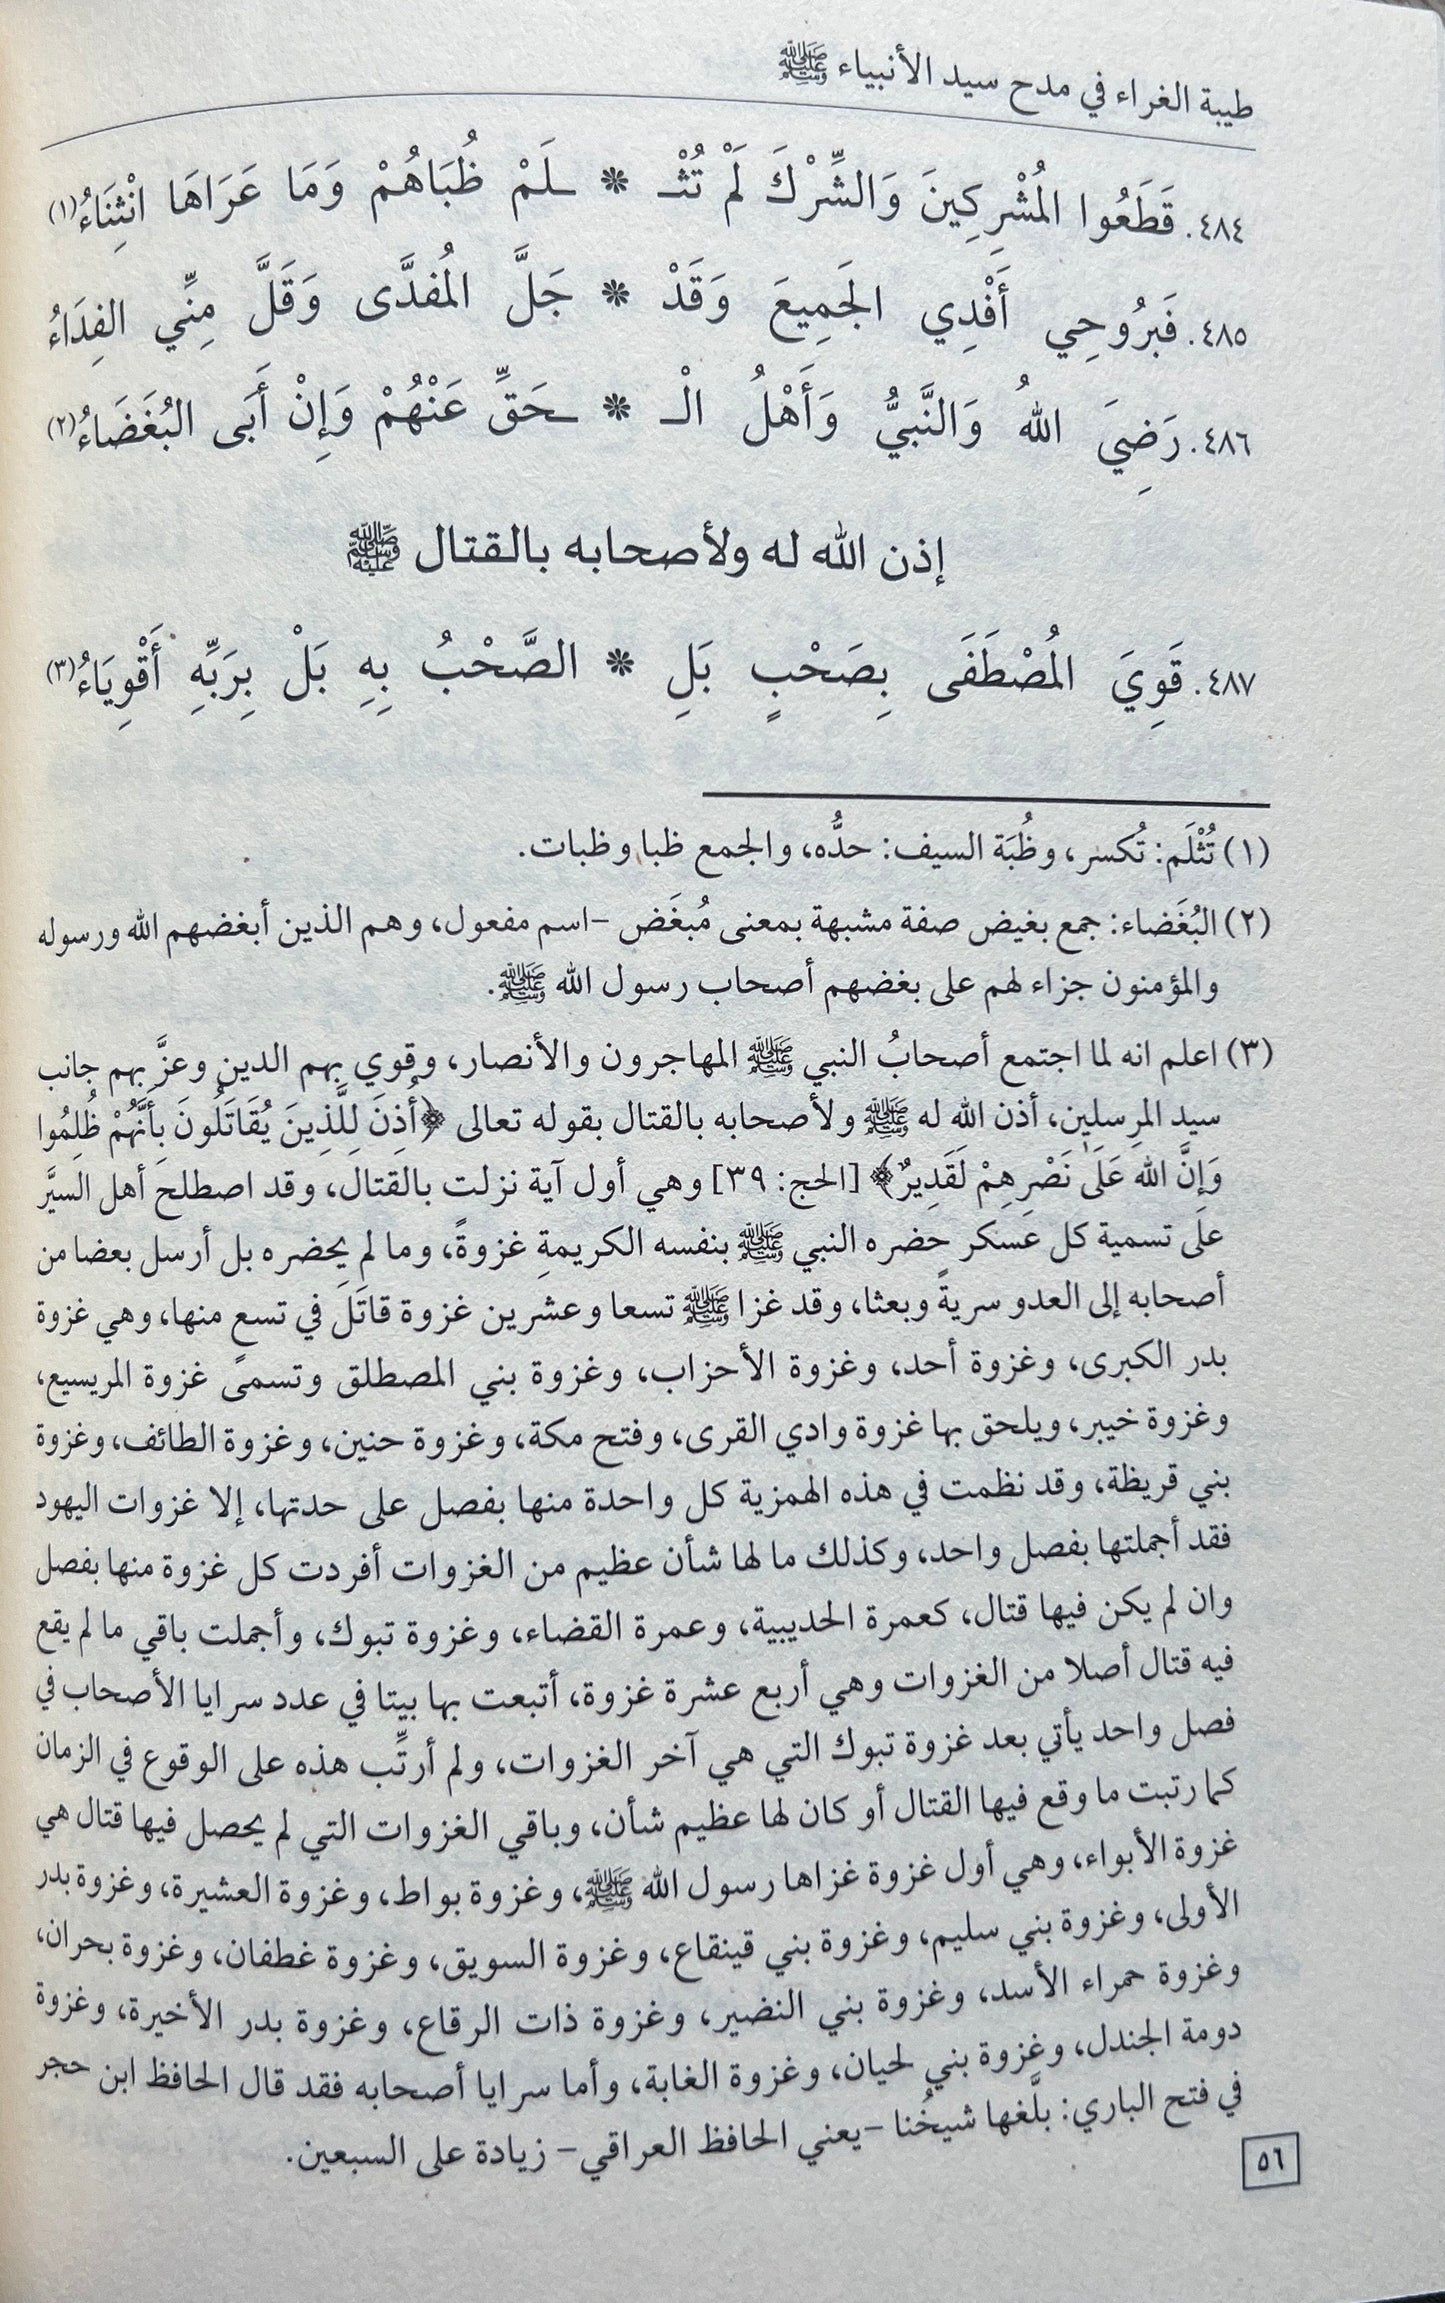 طيبة الغراء في مدح سيد الأنبياء ﷺ
٤٨٤. قَطَعُوا المُشْرِكِينَ وَالشِّرْكَ لَمْ تُثْـ * ـلَمْ ظُبَاهُمْ وَمَا عَرَاهَا انْثِنَاءُ(١)
٤٨٥. فَبِرُوحِي أَفْدِي الجَمِيعَ وَقَدْ * جَلَّ المُفدَّى وَقَلَّ مِنِّي الفِدَاءُ
٤٨٦. رَضِيَ اللهُ وَالنَّبيُّ وَأَهْلُ الْـ * ـحَقِّ عَنْهُمْ وَإِنْ أَبَى البُغَضَاءُ(٢)
إذن الله له ولأصحابه بالقتال ﷺ
٤٨٧. قَوِيَ المُصْطَفَى بِصَحْبٍ بَلِ * الصَّحْبُ بِهِ بَلْ بِرَبِّهِ أَقْوِيَاءُ(٣)
(١) تُثْلَم: تُكسر، وظُبَة السيف: حدُّه، والجمع ظبا وظبات.
(٢) البُغَضاء: جمع بغيض صفة مشبهة بمعنى مُبغَض -اسم مفعول، وهم الذين أبغضهم الله ورسوله
والمؤمنون جزاء لهم على بغضهم أصحاب رسول الله ﷺ.
(٣) اعلم انه لما اجتمع أصحابُ النبي ﷺ المهاجرون والأنصار، وقوي بهم الدين وعزَّ بهم جانب
سيد المرسلين، أذن الله له ﷺ ولأصحابه بالقتال بقوله تعالى ﴿أُذِنَ لِلَّذِينَ يُقَاتَلُونَ بِأَنَّهُمْ ظُلِمُوا
وَإِنَّ الله عَلَىٰ نَصْرِهِمْ لَقَدِيرٌ﴾ [الحج: ٣٩] وهي أول آية نزلت بالقتال، وقد اصطلح أهل السيَر
على تسمية كل عسكر حضره النبي ﷺ بنفسه الكريمةِ غزوةً، وما لم يحضره بل أرسل بعضا من
أصحابه إلى العدو سريةً وبعثا، وقد غزا ﷺ تسعا وعشرين غزوة قاتَلَ في تسع منها، وهي غزوة
بدر الكبرى، وغزوة أحد، وغزوة الأحزاب، وغزوة بني المصطلق وتسمى غزوة المريسيع،
وغزوة خيبر، ويلحق بها غزوة وادي القرى، وفتح مكة، وغزوة حنين، وغزوة الطائف، وغزوة
بني قريظة، وقد نظمت في هذه الهمزية كل واحدة منها بفصل على حدتها، إلا غزوات اليهود
فقد أجملتها بفصل واحد، وكذلك ما لها شأن عظيم من الغزوات أفردت كل غزوة منها بفصل
وان لم يكن فيها قتال، كعمرة الحديبية، وعمرة القضاء، وغزوة تبوك، وأجملت باقي ما لم يقع
فيه قتال أصلا من الغزوات وهي أربع عشرة غزوة، أتبعت بها بيتا في عدد سرايا الأصحاب في
فصل واحد يأتي بعد غزوة تبوك التي هي آخر الغزوات، ولم أرتِّب هذه على الوقوع في الزمان
كما رتبت ما وقع فيها القتال أو كان لها عظيم شأن، وباقي الغزوات التي لم يحصل فيها قتال هي
غزوة الأبواء، وهي أول غزوة غزاها رسول الله ﷺ، وغزوة بواط، وغزوة العشيرة، وغزوة بدر
الأولى، وغزوة بني سليم، وغزوة بني قينقاع، وغزوة السويق، وغزوة غطفان، وغزوة بحران،
وغزوة حمراء الأسد، وغزوة بني النضير، وغزوة ذات الرقاع، وغزوة بدر الأخيرة، وغزوة
دومة الجندل، وغزوة بني لحيان، وغزوة الغابة، وأما سرايا أصحابه فقد قال الحافظ ابن حجر
في فتح الباري: بلَّغها شيخُنا -يعني الحافظ العراقي- زيادة على السبعين.
٥٦